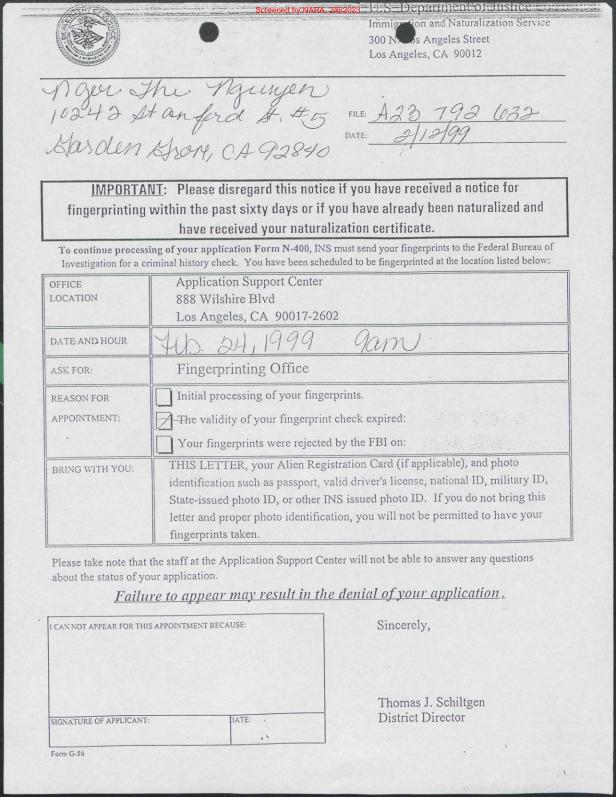 Screened by NARA, 7/6/2023
U.S. Department of Justice
Immigration and Naturalization Service
300 N. Los Angeles Street
Los Angeles, CA 90012
Nger The Nguyen
10242 Stanford #5
Garden Grove, CA 92840
FILE: A23 792 632
DATE: 2/12/99
IMPORTANT: Please disregard this notice if you have received a notice for
fingerprinting within the past sixty days or if you have already been naturalized and
have received your naturalization certificate.
To continue processing of your application Form N-400, INS must send your fingerprints to the Federal Bureau of
Investigation for a criminal history check. You have been scheduled to be fingerprinted at the location listed below:
OFFICE LOCATION
Application Support Center
888 Wilshire Blvd
Los Angeles, CA 90017-2602
DATE AND HOUR Feb. 24, 1999 9am
ASK FOR: Fingerprinting Office
REASON FOR APPOINTMENT:
Initial processing of your fingerprints.
The validity of your fingerprint check expired:
Your fingerprints were rejected by the FBI on:
BRING WITH YOU: THIS LETTER, your Alien Registration Card (if applicable), and photo
identification such as passport, valid driver's license, national ID, military ID,
State-issued photo ID, or other INS issued photo ID. If you do not bring this
letter and proper photo identification, you will not be permitted to have your
fingerprints taken.
Please take note that the staff at the Application Support Center will not be able to answer any questions
about the status of your application.
Failure to appear may result in the denial of your application.
I CAN NOT APPEAR FOR THIS APPOINTMENT BECAUSE:
SIGNATURE OF APPLICANT: DATE:
Form G-56
Sincerely,
Thomas J. Schiltgen
District Director